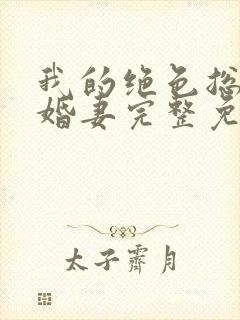 我的绝色总
婚妻完整免
太子霁月